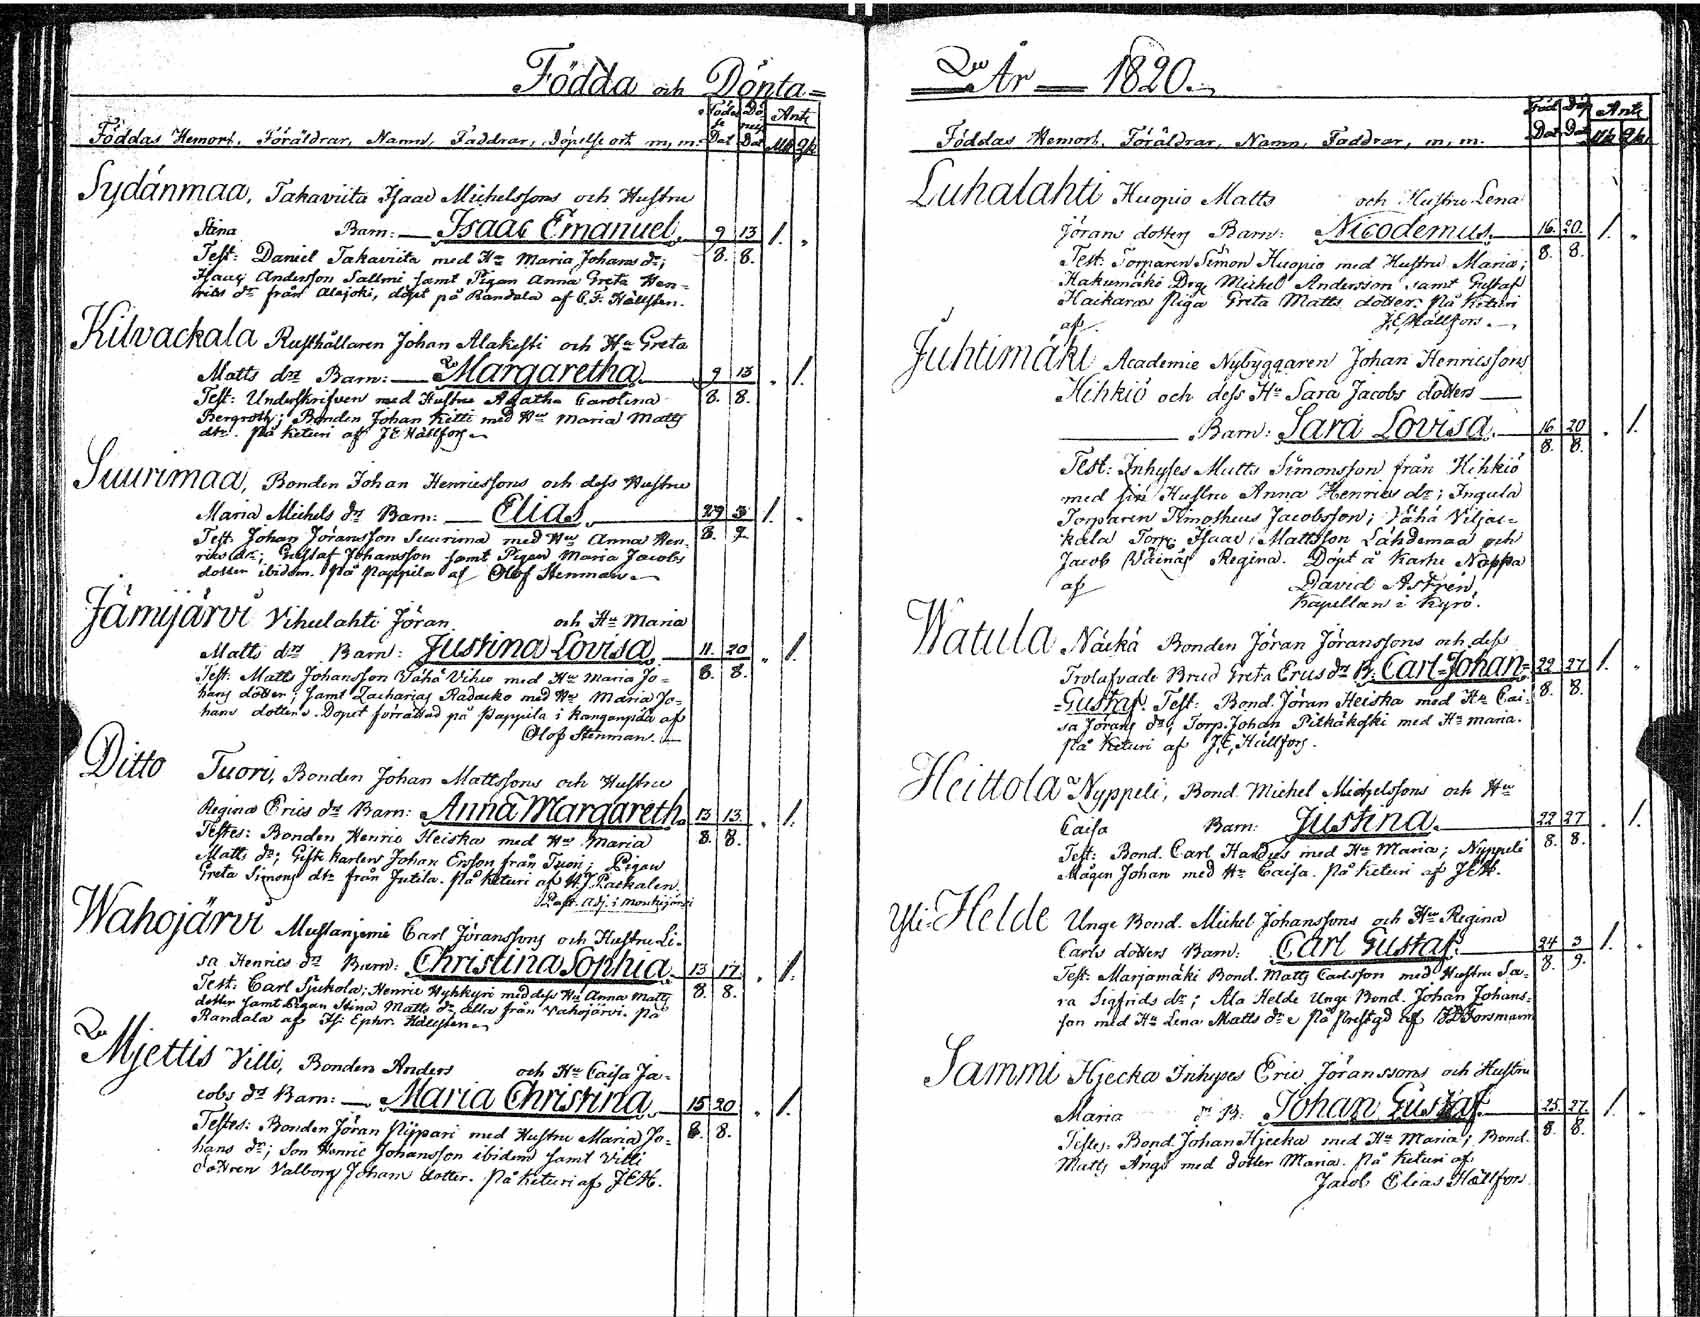 Födda och Döpta=
Föddas Hemort, Föräldrar, Namn, Faddrar, Döpelse ort m, m.
Födel se Dat
Döpelse Dat
Ant:
Mk Qk
Sydänmaa, Takaviita Isaac Michelssons och Hustru
Stina Barn: Isaac Emanuel. 9 13 1. „
Test: Daniel Takaviita med Hu Maria Johans dr; 8. 8.
Isaac Andersson Sallmi samt Pigan Anna Greta Hen=
rics dr från Alajoki, döpt på Randala af Hällsten.
Kilvackala Rusthållaren Johan Alakesti och Hu Greta
Matts dr Barn: Margaretha 9 13 „ 1.
Test: Underskrifven med Hustru Agatha Carolina 8. 8.
Bergroth; Bonden Johan Kitti med Hu Maria Matts
dtr. på Keturi af J E Hällfors
Suurimaa, Bonden Johan Henricssons och dess Hustru
Maria Michels dr Barn: Elias 29 3 1. „
Test. Johan Jöransson Suurima med Hu Anna Hen= 8. 9.
rics dr; Gustaf Johansson samt Pigan Maria Jacobs
dotter ibidem. på Pappila af Olof Stenman
Jämijärvi Vihulahti Jöran och Hu Maria
Matts dr Barn: Justina Lovisa 11. 20 „ 1.
Test. Matts Johansson Vähä Vihu med Hu Maria Jo= 8. 8.
hans dotter, samt Zacharias Radacko med Hu Maria Jo=
hans dotter. Dopet förrättad på Pappila i Kanganpää af
Olof Stenman.
Ditto Tuori, Bonden Johan Mattssons och Hustru
Regina Erics dr Barn: Anna Margareth. 13 13 „ 1.
Testes: Bonden Henric Heiska med Hu Maria 8. 8.
Matts dr; Gift karlen Johan Ersson från Tuori; Pigan
Greta Simons dtr från Jutila. på Keturi af
Past. Adj. i Mouhijärvi
Wahojärvi Mustanjemi Carl Jöranssons och Hustru Li=
sa Henrics dr Barn: Christina Sophia 13 17 „ 1.
Test: Carl Sjukola; Henric Hyhkyri med dess Hu Anna Matts 8 8.
dotter samt Pigan Stina Matts dr alla från Vahojärvi. på
Randala af Is: Ephr. Hällsten
Mjettis Villi, Bonden Anders och Hu Caisa Ja=
cobs dr Barn: Maria Christina 15 20 „ 1.
Testes: Bonden Jöran Nippari med Hustru Maria Jo= 8. 8.
hans dr; Son Henric Johansson ibidem samt Villi
dottren Valborg Johans dotter. på Keturi af J E H.
År 1820.
Föddas Hemort, Föräldrar, Namn, Faddrar, m, m.
Föd Dat
Döp Dat
Ant:
Mk Qk
Luhalahti Huopio Matts och Hustru Lena
Jörans dotters Barn: Nicodemus 16. 20. 1. „
Test: Torparen Simon Huopio med Hustru Maria; 8. 8.
Hakumäki Drg Michel Andersson samt Gustaf
Hackaras Piga Greta Matts dotter: på Keturi
af J. E Hällfors.
Juhtimäki Academie Nybyggaren Johan Henricssons
Hihkiö och dess Hu Sara Jacobs dotters
Barn: Sara Lovisa 16 20 „ 1.
8. 8.
Test: Inhyses Matts Simonsson från Hihkiö
med sin Hustru Anna Henrics dr; Ingula
Torparen Timotheus Jacobsson; Vähä Viljac=
kala Torp: Isaac Mattsson Lähdemaa och
Jacob Väinäs Regina. Döpt å Karhe Nappa
af David Astrén
Kapellan i Kyrö.
Watula Näckä Bonden Jöran Jöranssons och dess
Trolofvade Brud Greta Ericsdr B: Carl=Johan= 22 27 1. „
=Gustaf. Test: Bond. Jöran Heiska med Hu Cai= 8. 8.
sa Jörans dr; Torp. Johan Pitkäkoski med Hu Maria.
på Keturi af J, E, Hällfors.
Heittola Nyppeli, Bond Michel Michelssons och Hu
Caisa Barn: Justina. 22 27 „ 1.
Test: Bond. Carl Hardus med Hu Maria; Nyppeli 8. 8.
Mågen Johan med Hu Caisa. på Keturi af J E H.
Yli=Helde Unge Bond. Michel Johanssons och Hu Regina
Carls dotters Barn: Carl Gustaf. 24 3 1. „
Test: Marjamäki Bond. Matts Carlsson med Hustru Sa= 8. 9.
ra Sigfrids dr; Ala Helde Unge Bond. Johan Johans=
son med Hu Lena Matts dr på Prestgd af Forsman
Sammi Hjecka Inhyses Eric Jöranssons och Hustru
Maria dr B: Johan Gustaf 25 27 1. „
Testes: Bond. Johan Hjecka med Hu Maria; Bond. 8 8.
Matts Ängs med dotter Maria. på Keturi af
Jacob Elias Hällfors